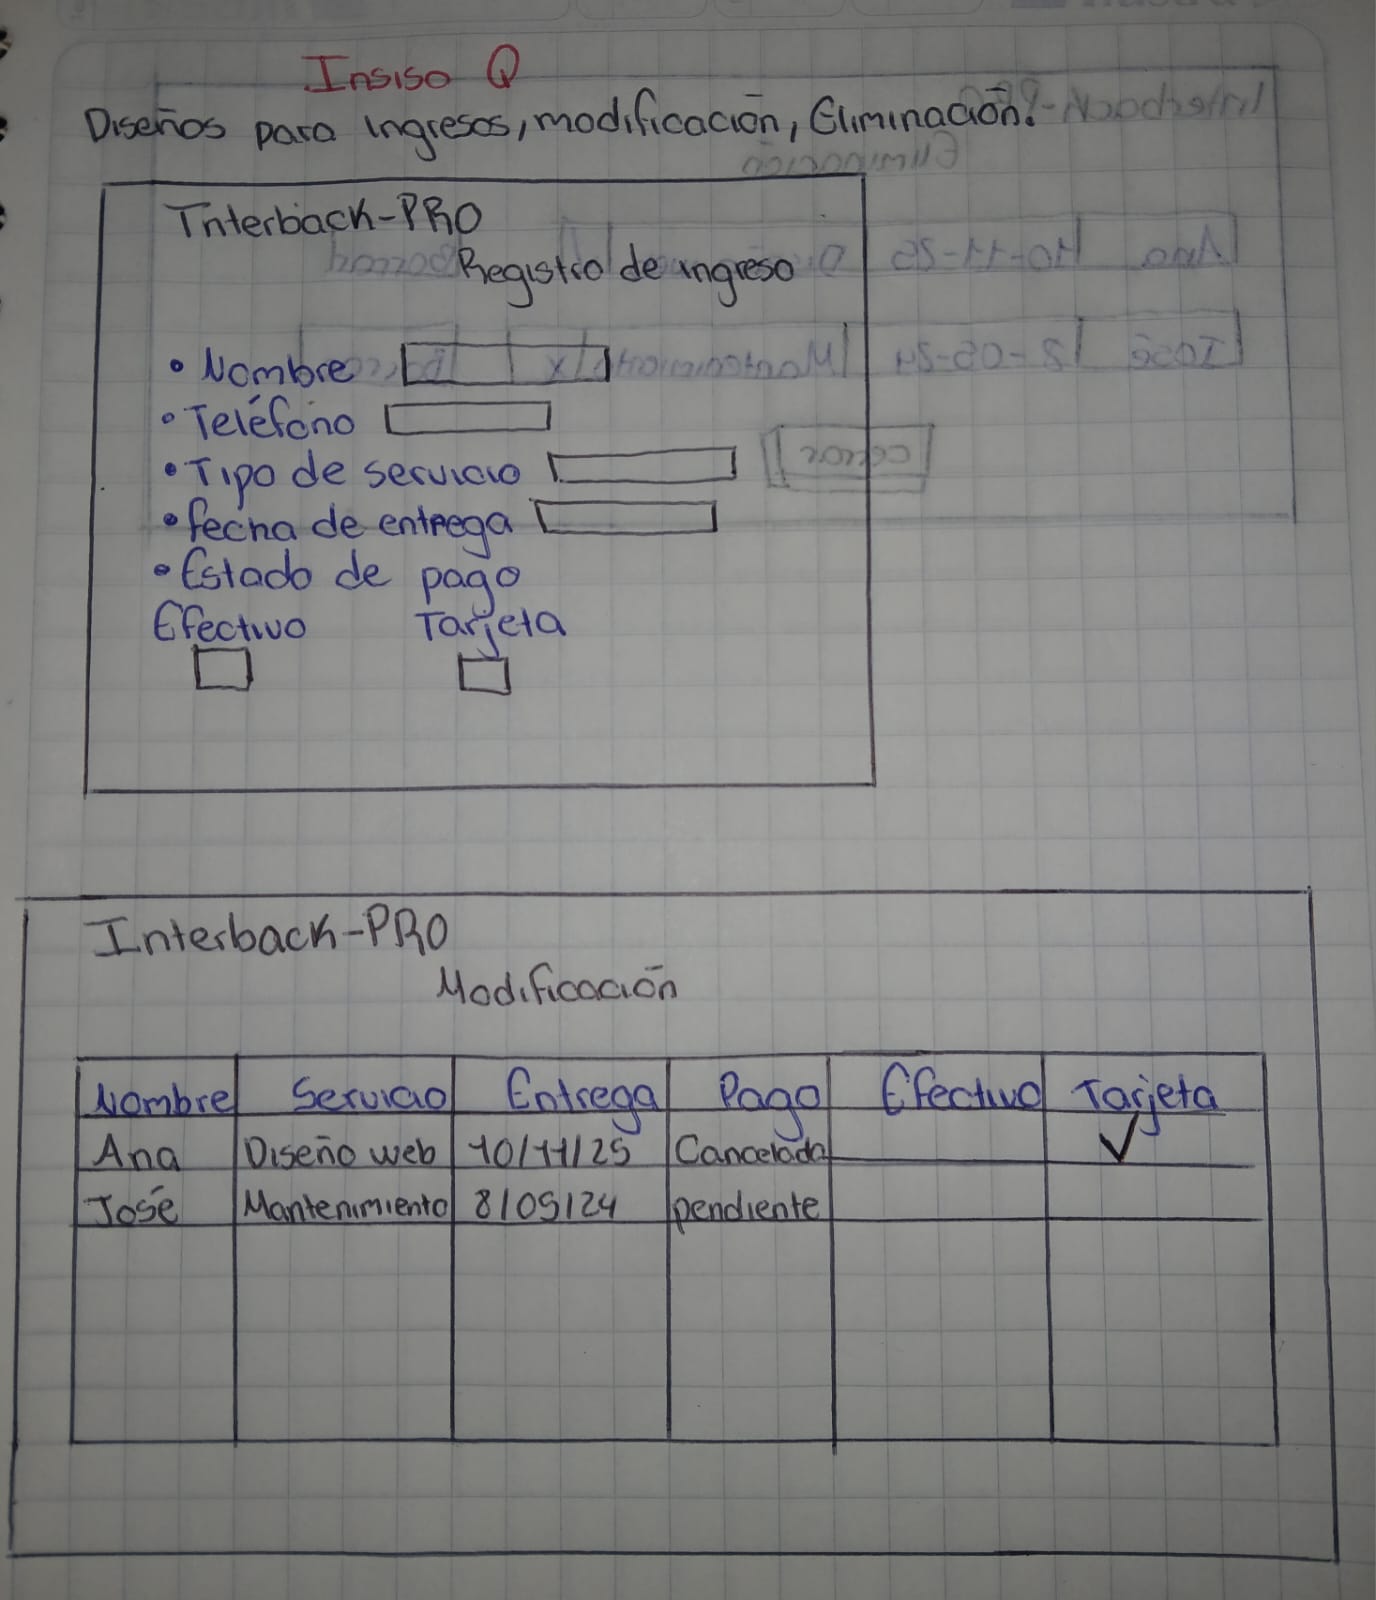 Insiso Q
Diseños para ingresos, modificación, Eliminación.
Interback-PRO
Registro de ingreso
• Nombre
• Teléfono
• Tipo de servicio
• fecha de entrega
• Estado de pago
Efectivo Tarjeta
Interback-PRO
Modificación
Nombre Servicio Entrega Pago Efectivo Tarjeta
Ana Diseño web 10/11/25 Cancelada ✓
José Mantenimiento 8/05/24 pendiente